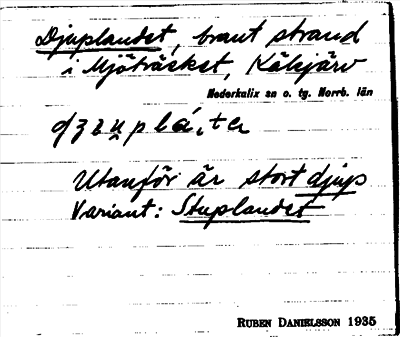 Djuplandet, brant strand
i Mjöträsket, Kälsjärv
Nederkalix sn o. tg. Norrb. län
Utanför är stort djup
Variant: Stuplandet
RUBEN DANIELSSON 1935